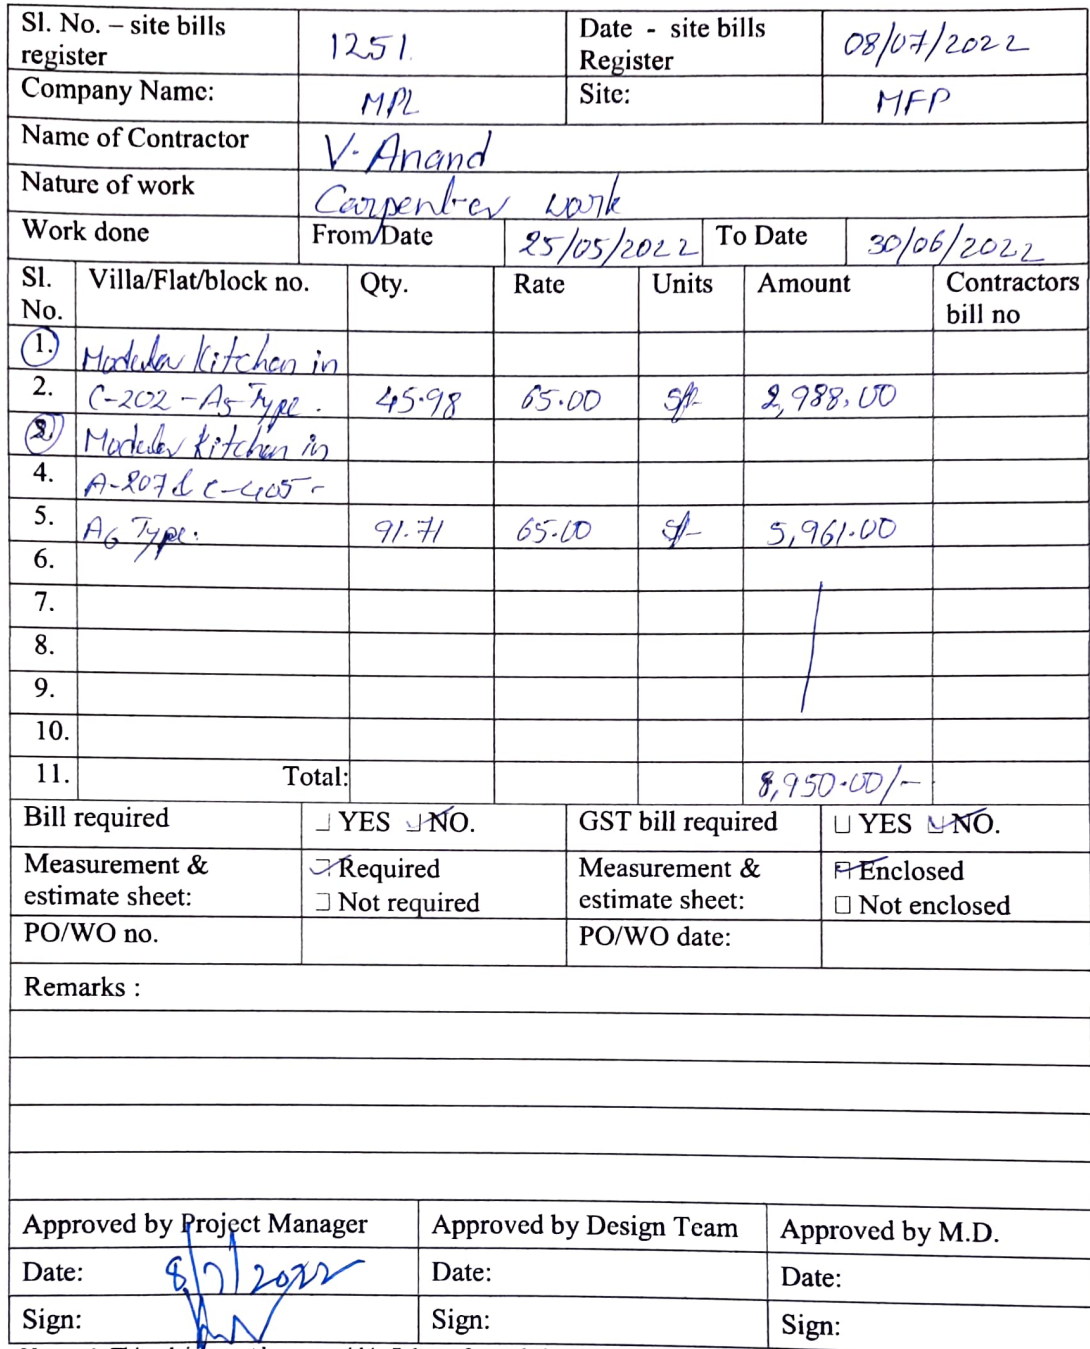 Sl. No. – site bills register 1251. Date - site bills Register 08/07/2022
Company Name: MPL Site: MFP
Name of Contractor V. Anand
Nature of work Carpenter work
Work done From Date 25/05/2022 To Date 30/06/2022
Sl. No. Villa/Flat/block no. Qty. Rate Units Amount Contractors bill no
1. Modular Kitchen in
2. C-202 - A5 Type. 45.98 65.00 Sft 2,988.00
2. Modular Kitchen in
4. A-207 & C-405 -
5. A6 Type. 91.71 65.00 Sft 5,961.00
6.
7.
8.
9.
10.
11. Total: 8,950.00/-
Bill required YES NO. GST bill required YES NO.
Measurement & estimate sheet: Required Measurement & estimate sheet: Enclosed
Not required Not enclosed
PO/WO no. PO/WO date:
Remarks :
Approved by Project Manager Approved by Design Team Approved by M.D.
Date: 8/7/2022 Date: Date:
Sign: Sign: Sign: